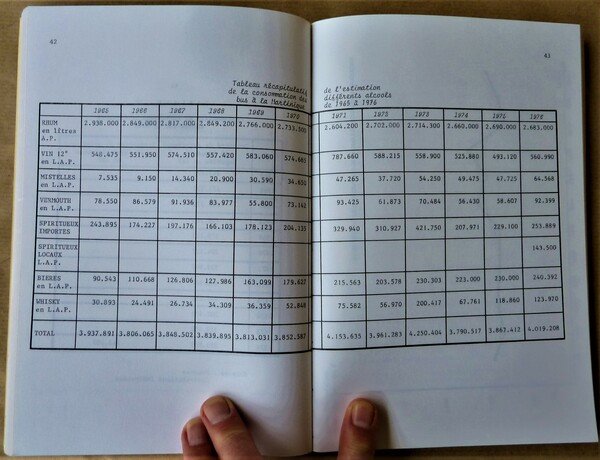 42
43
Tableau récapitulatif de l'estimation
de la consommation des différents alcools
bus à la Martinique de 1965 à 1976
1965 1966 1967 1968 1969 1970 1971 1972 1973 1974 1975 1976
RHUM
en litres
A.P. 2.938.000 2.849.000 2.817.000 2.849.200 2.766.000 2.733.500 2.604.200 2.702.000 2.714.300 2.660.000 2.690.000 2.683.000
VIN 12°
en L.A.P. 548.475 551.950 574.510 557.420 583.060 574.685 787.660 588.215 558.900 525.880 493.120 560.990
MISTELLES
en L.A.P. 7.535 9.150 14.340 20.900 30.590 34.650 47.265 37.720 54.250 49.475 47.725 64.568
VERMOUTH
en L.A.P. 78.550 86.579 91.936 83.977 55.800 73.142 93.425 61.873 70.484 56.430 58.607 92.399
SPIRITUEUX
IMPORTES 243.895 174.227 197.176 166.103 178.123 204.135 329.940 310.927 421.750 207.971 229.100 253.889
SPIRITUEUX
LOCAUX
L.A.P. 143.500
BIERES
en L.A.P. 90.543 110.668 126.806 127.986 163.099 179.627 215.563 203.578 230.303 223.000 230.000 240.392
WHISKY
en L.A.P. 30.893 24.491 26.734 34.309 36.359 52.848 75.582 56.970 200.417 67.761 118.860 123.970
TOTAL 3.937.891 3.806.065 3.848.502 3.839.895 3.813.031 3.852.587 4.153.635 3.961.283 4.250.404 3.790.517 3.867.412 4.019.208